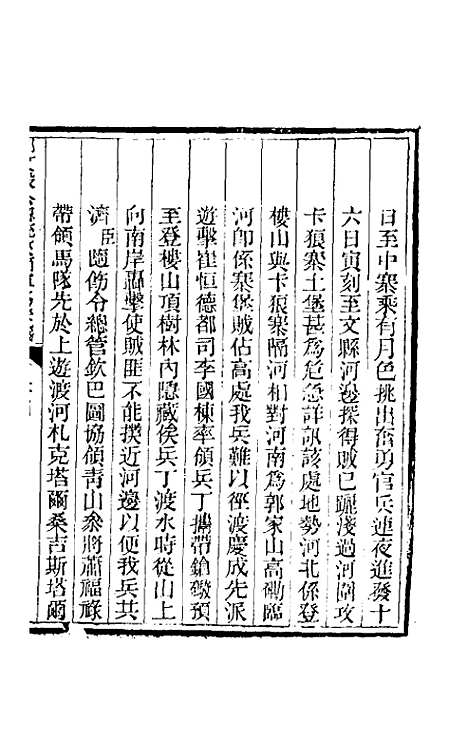 日至中寨乘有月色挑出奮勇官兵連夜進發十
六日寅刻至文縣河邊探得賊已躧淺過河圍攻
卡狼寨土堡甚爲危急詳訊該處地勢河北係登
樓山與卡狼寨隔河相對河南爲郭家山高磡臨
河卽係寨堡賊佔高處我兵難以徑渡慶成先派
遊擊崔恒德都司李國棟率領兵丁攜帶鎗礮預
至登樓山頂樹林內隱藏俟兵丁渡水時從山上
向南岸轟擊使賊匪不能撲近河邊以便我兵共
濟臣隨飭令總管欽巴圖協領靑山叅將蕭福祿
帶領馬隊先於上遊渡河札克塔爾桑吉斯塔爾